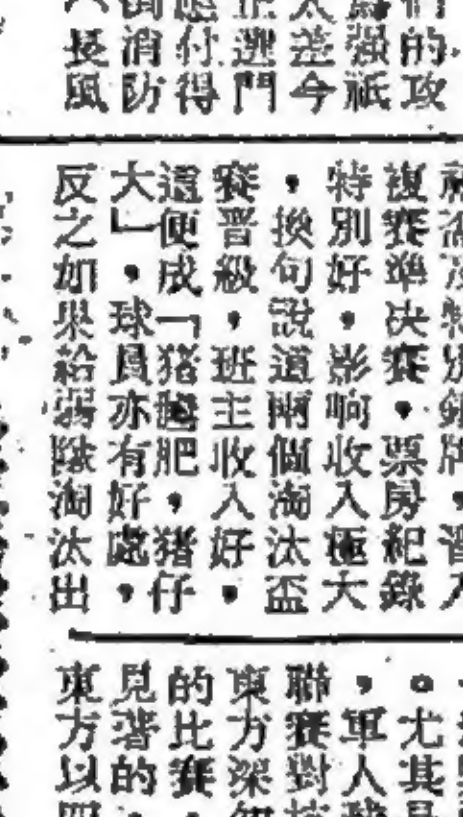 們的攻
強祇
太差今
正選門
應付得
消防
長風
複賽準决賽，票房紀錄
特別好，影响收入極大
，換句說道兩個淘汰盃
賽晉級，班主收入好，
這便成「猪乸肥，猪仔
大」，球員亦有好處，
反之如果給弱隊淘汰出
。尤其
，軍人
聯賽對
東方深
的比賽
見著的
東方以